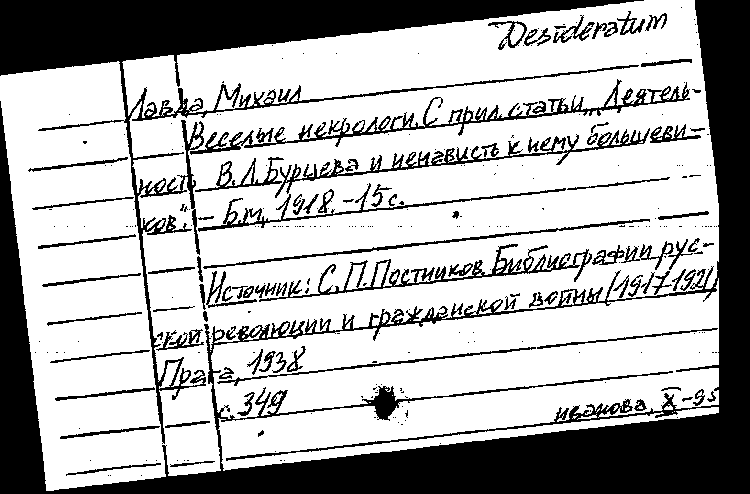 Desideratum
Лавда, Михаил
Веселые некрологи. С прил. статьи „Деятель-
ность В.Л. Бурцева и ненависть к нему большеви-
ков“. – Б.м., 1918. – 15 с.
Источник: С.П. Постников. Библиография рус-
ской революции и гражданской войны (1917-1921)
Прага, 1938
с. 349
иванова, X-95